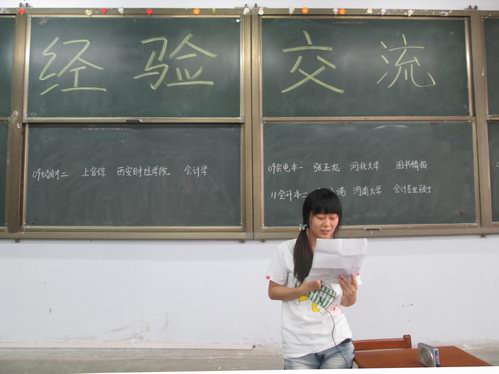 经验交流
09经财二 上官琼 西安财经学院 会计学
09会电本一 张玉龙 河北大学 图书情报
11会升本二 诺 河南大学 会计专业硕士